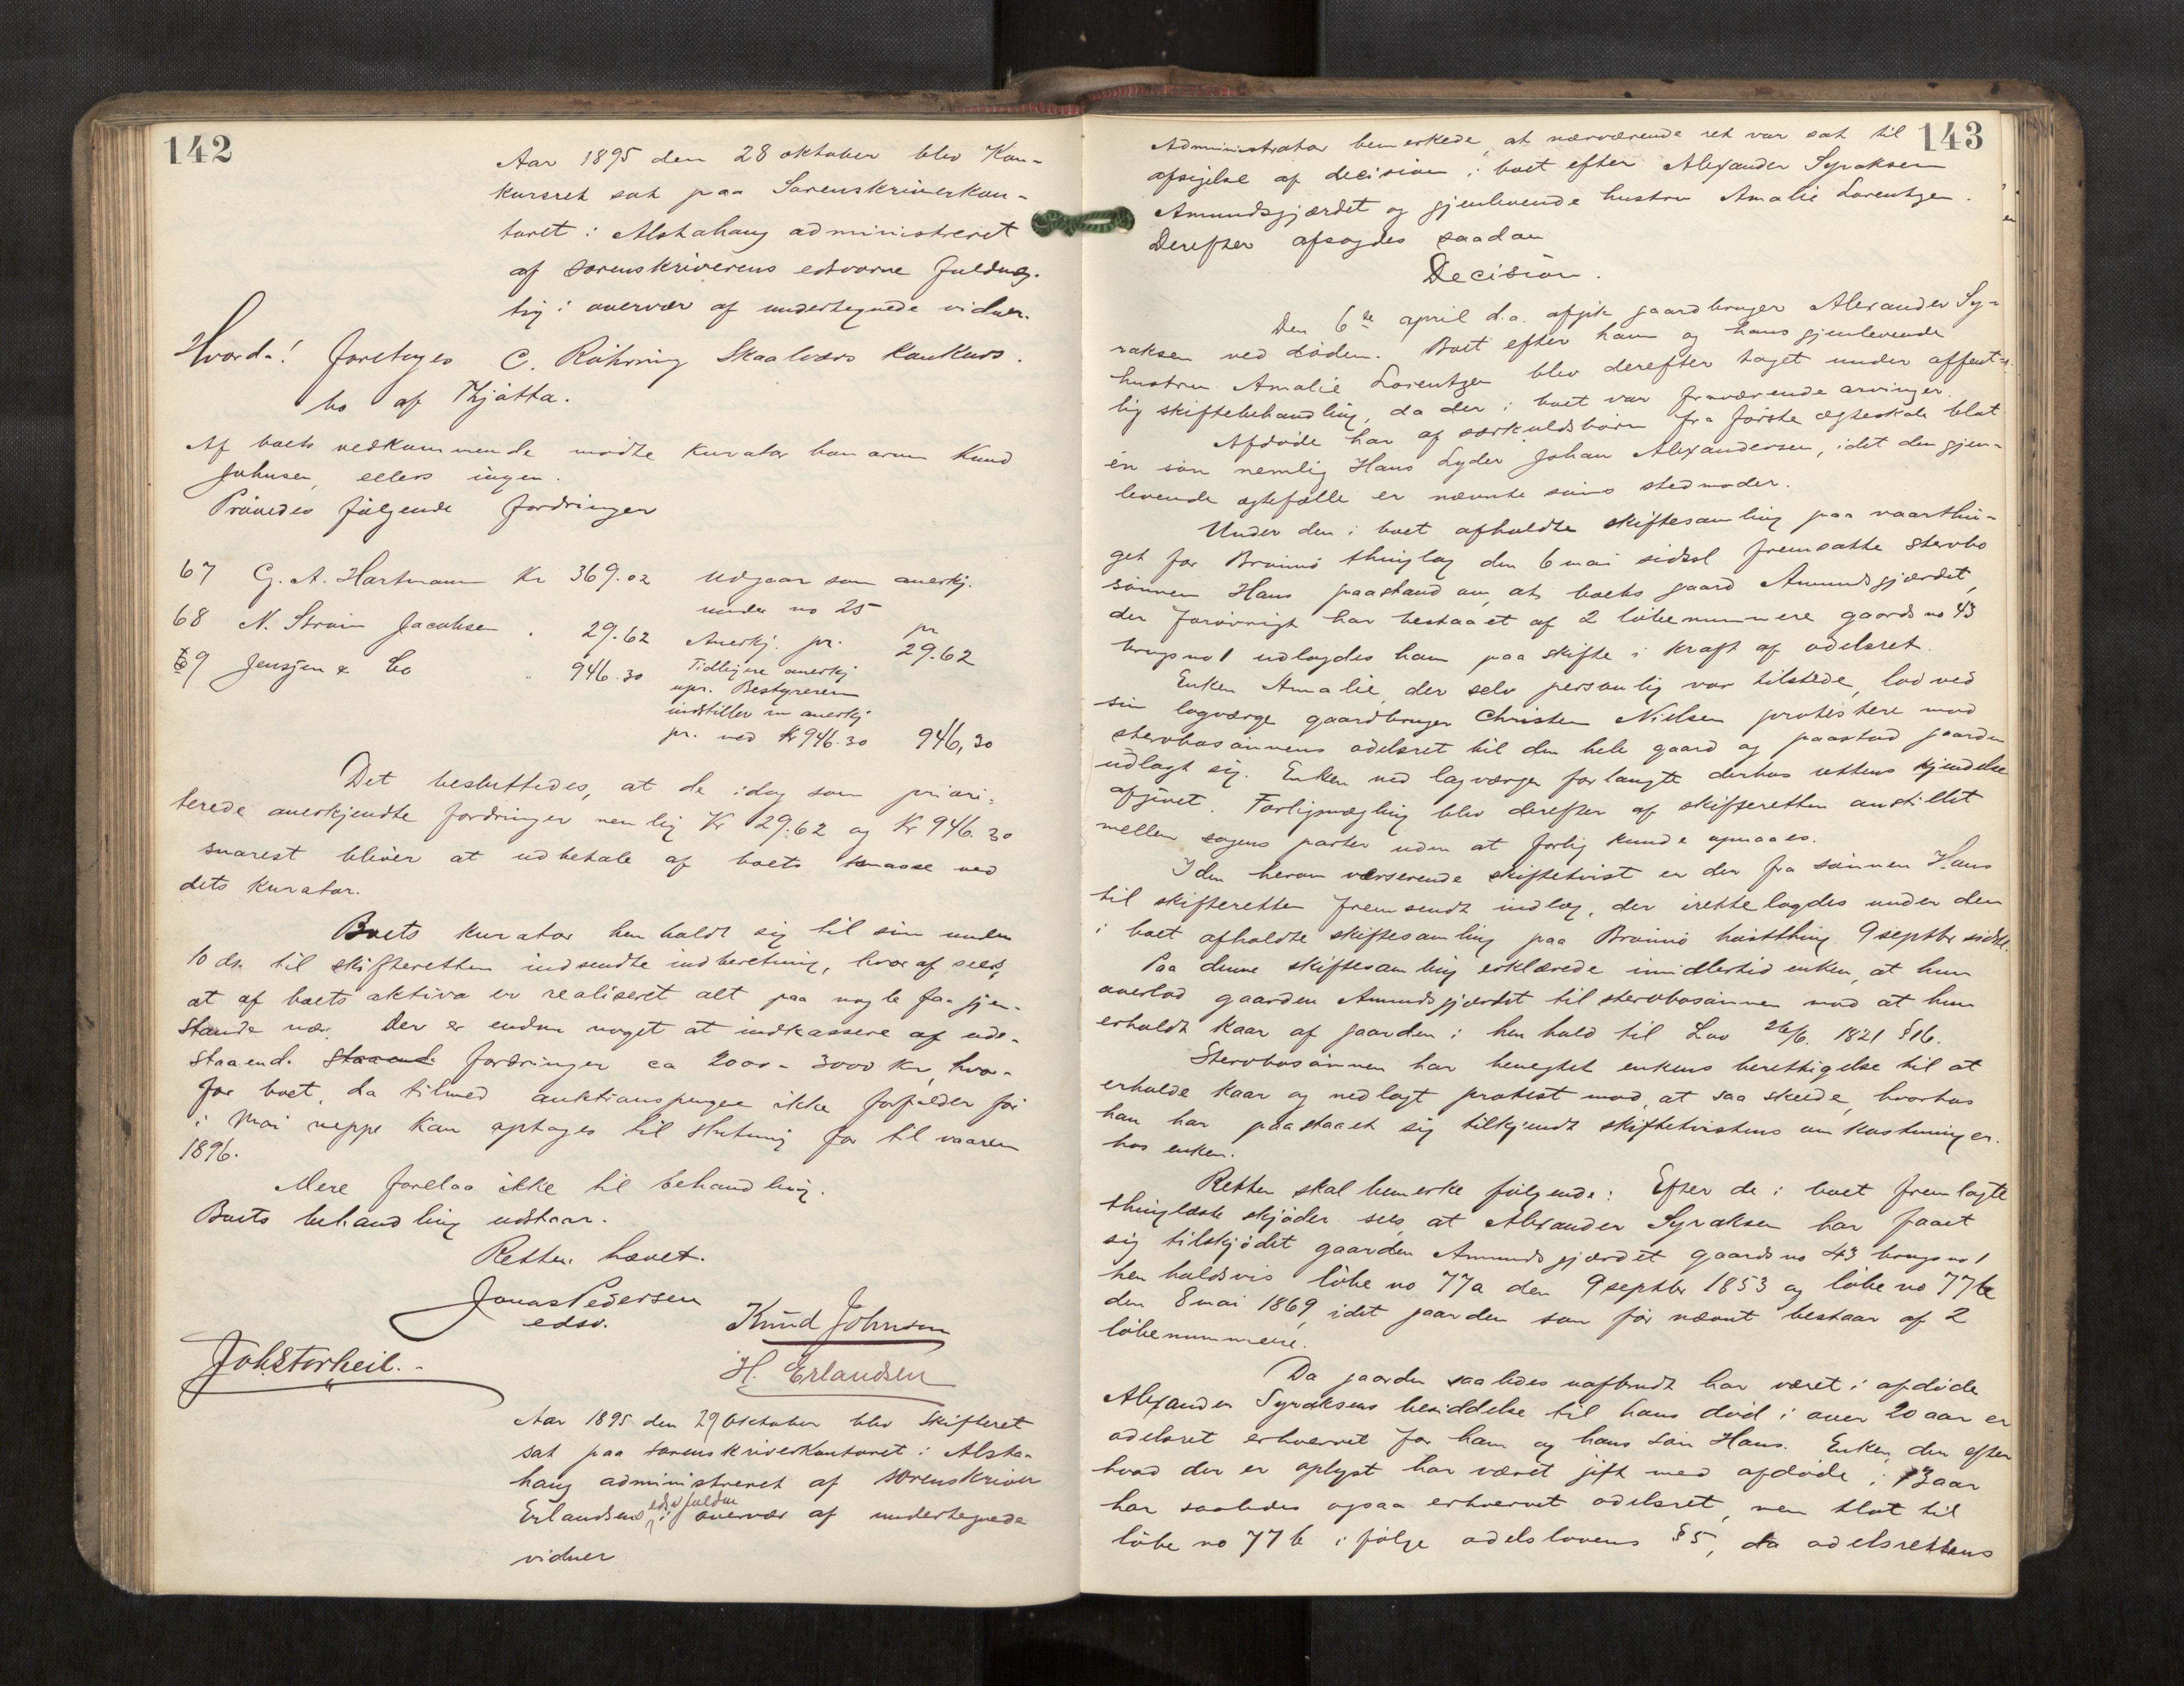 142
Aar 1895 den 28 oktober blev Kon-
kursret sat paa Sorenskriverkon-
toret i Alstahaug administreret
af sorenskriverens edsvorne fuldmæg-
tig i overvær af undertegnede vidner.
Hvorda! foretoges C. Röhring Skaalværo Konkurs
bo af Thjøtta.
Af boets vedkommende mødte kurator bonorum Knud
Johnsen, ellers ingen.
Prøvedes følgende fordringer
67 G. A. Hartmann Kr 369.02 udgaar som anerkj.
under no 25
68 N. Strøm Jacobsen . 29.62 Anerkj. pr. pr 29.62
69 Jensjen & Co . 946.30 Tidligere anerkj
upr. Bestyreren
indstiller nu anerkj
pr. ved kr 946.30 946,30
Det besluttedes, at de idag som priori-
terede anerkjendte fordringer nemlig Kr 29.62 og Kr 946.30
snarest bliver at udbetale af boets masse ved
dets kurator.
Boets kurator henholdt sig til sin under
10 ds. til skifteretten indsendte indberetning, hvoraf sees,
at af boets aktiva er realiseret alt paa nogle faa gjen-
stande nær. Der er endnu noget at indkassere af ude-
staaende staaende fordringer ca 2000 - 3000 Kr, hvor-
for boet, da tilmed auktionspengene ikke forfalder før
i Mai neppe kan optages til slutning før til vaaren
1896.
Mere forelaa ikke til behandling.
Boets behandling udstaar.
Retten hævet.
Jonas Pedersen
edsv.
Knud Johnsen
Joh Storheil.
H. Erlandsen
Aar 1895 den 29 Oktober blev Skifteret
sat paa sorenskriverkontoret i Alsta-
haug administreret af sorenskriver
Erlandsens edsv fuldm i overvær af undertegnede
vidner
143
Administrator bemerkede, at nærværende ret var sat til
afsigelse af decision i boet efter Alexander Syraksen
Amundsgjærdet og gjenlevende hustru Amalie Lorentzen.
Derefter afsagdes saadan
Decision.
Den 6te april d.a. afgik gaardbruger Alexander Sy-
raksen ved døden. Boet efter ham og hans gjenlevende
hustru Amalie Lorentzen blev derefter taget under offent-
lig skiftebehandling, da der i boet var fraværende arvinger.
Afdøde har af særkuldsbørn fra første ægteskab blot
én søn nemlig Hans Lyder Johan Alexandersen, idet den gjen-
levende ægtefælle er nævnte søns stedmoder.
Under den i boet afholdte skiftesamling paa vaarthin-
get for Brønnø thinglag den 6 mai sidstl fremsatte stervbo
sønnen Hans paastand om, at boets gaard Amundsgjærdet,
der forøvrigt har bestaaet af 2 løbenummere gaards no 43
brugsno 1 udlagdes ham paa skifte i kraft af odelsret.
Enken Amalie, der selv personlig var tilstede, lod ved
sin lagværge gaardbruger Christen Nielsen protestere mod
stervbosønnens odelsret til den hele gaard og paastod gaarden
udlagt sig. Enken ved lagværge forlangte derhos rettens kjendelse
afgivet. Forligsmægling blev derefter af skifteretten anstillet
mellem sagens parter uden at forlig kunde opnaaes.
I den herom værserende skiftetvist er der fra sønnen Hans
til skifteretten fremsendt indlæg, der irettelagdes under den
i boet afholdte skiftesamling paa Brønnø høstthing 9 septbr sidstl.
Paa denne skiftesamling erklærede imidlertid enken, at hun
overlod gaarden Amundsgjærdet til stervbosønnen mod at hun
erholdt kaar af gaarden i henhold til Lov 26/6. 1821 § 16.
Stervbosønnen har benegtet enkens berettigelse til at
erholde kaar og nedlagt protest mod, at saa skeede, hvorhos
han har paastaaet sig tilkjendt skiftetvistens omkostninger.
hos enken.
Retten skal bemerke følgende: Efter de i boet fremlagte
thinglæste skjøder sees, at Alexander Syraksen har faaet
sig tilskjødet gaarden Amundsgjærdet gaards no 43 brugs no 1
henholdsvis løbe no 77a den 9 septbr 1853 og løbe no 77b
den 8 mai 1869, idet gaarden som før nævnt bestaar af 2
løbenummere.
Da gaarden saaledes uafbrudt har været i afdøde
Alexander Syraksens besiddelse til hans død i over 20 aar er
odelsret erhvervet for ham og hans søn Hans. Enken, der efter
hvad der er oplyst har været gift med afdøde i 13 aar
har saaledes ogsaa erhvervet odelsret, men blot til
løbe no 77 b ifølge odelslovens § 5, da odelsrettens